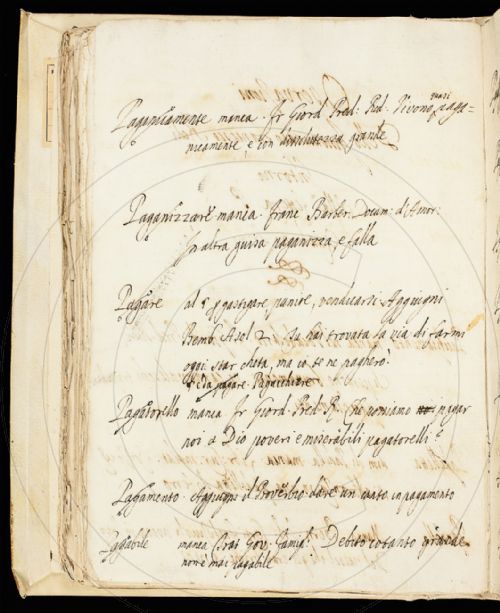 Paganicamente manca. Fr Giord. Pred: Red. Vivono quasi paga=
nicamente, e con dissolutezza grande
Paganizzare manca. Franc. Barber. Docum: d'Amor:
In altra guisa paganizza, e falla
Pagare al § gastigare punire, vendicarsi Aggiugni
Bemb. Asol 2. tu hai trovata la via di farmi
oggi star cheta, ma io te ne pagherò
Da pagare. Pagatorello
Pagatorello manca Fr Giord. Pred R. Che possiamo pagar
noi a Dio poveri e miserabili pagatorelli?
Pagamento. Aggiugni il Proverbio dare un in pagamento
Pagabile manca Gov. Famigl: Debito cotanto grande
non è mai pagabile